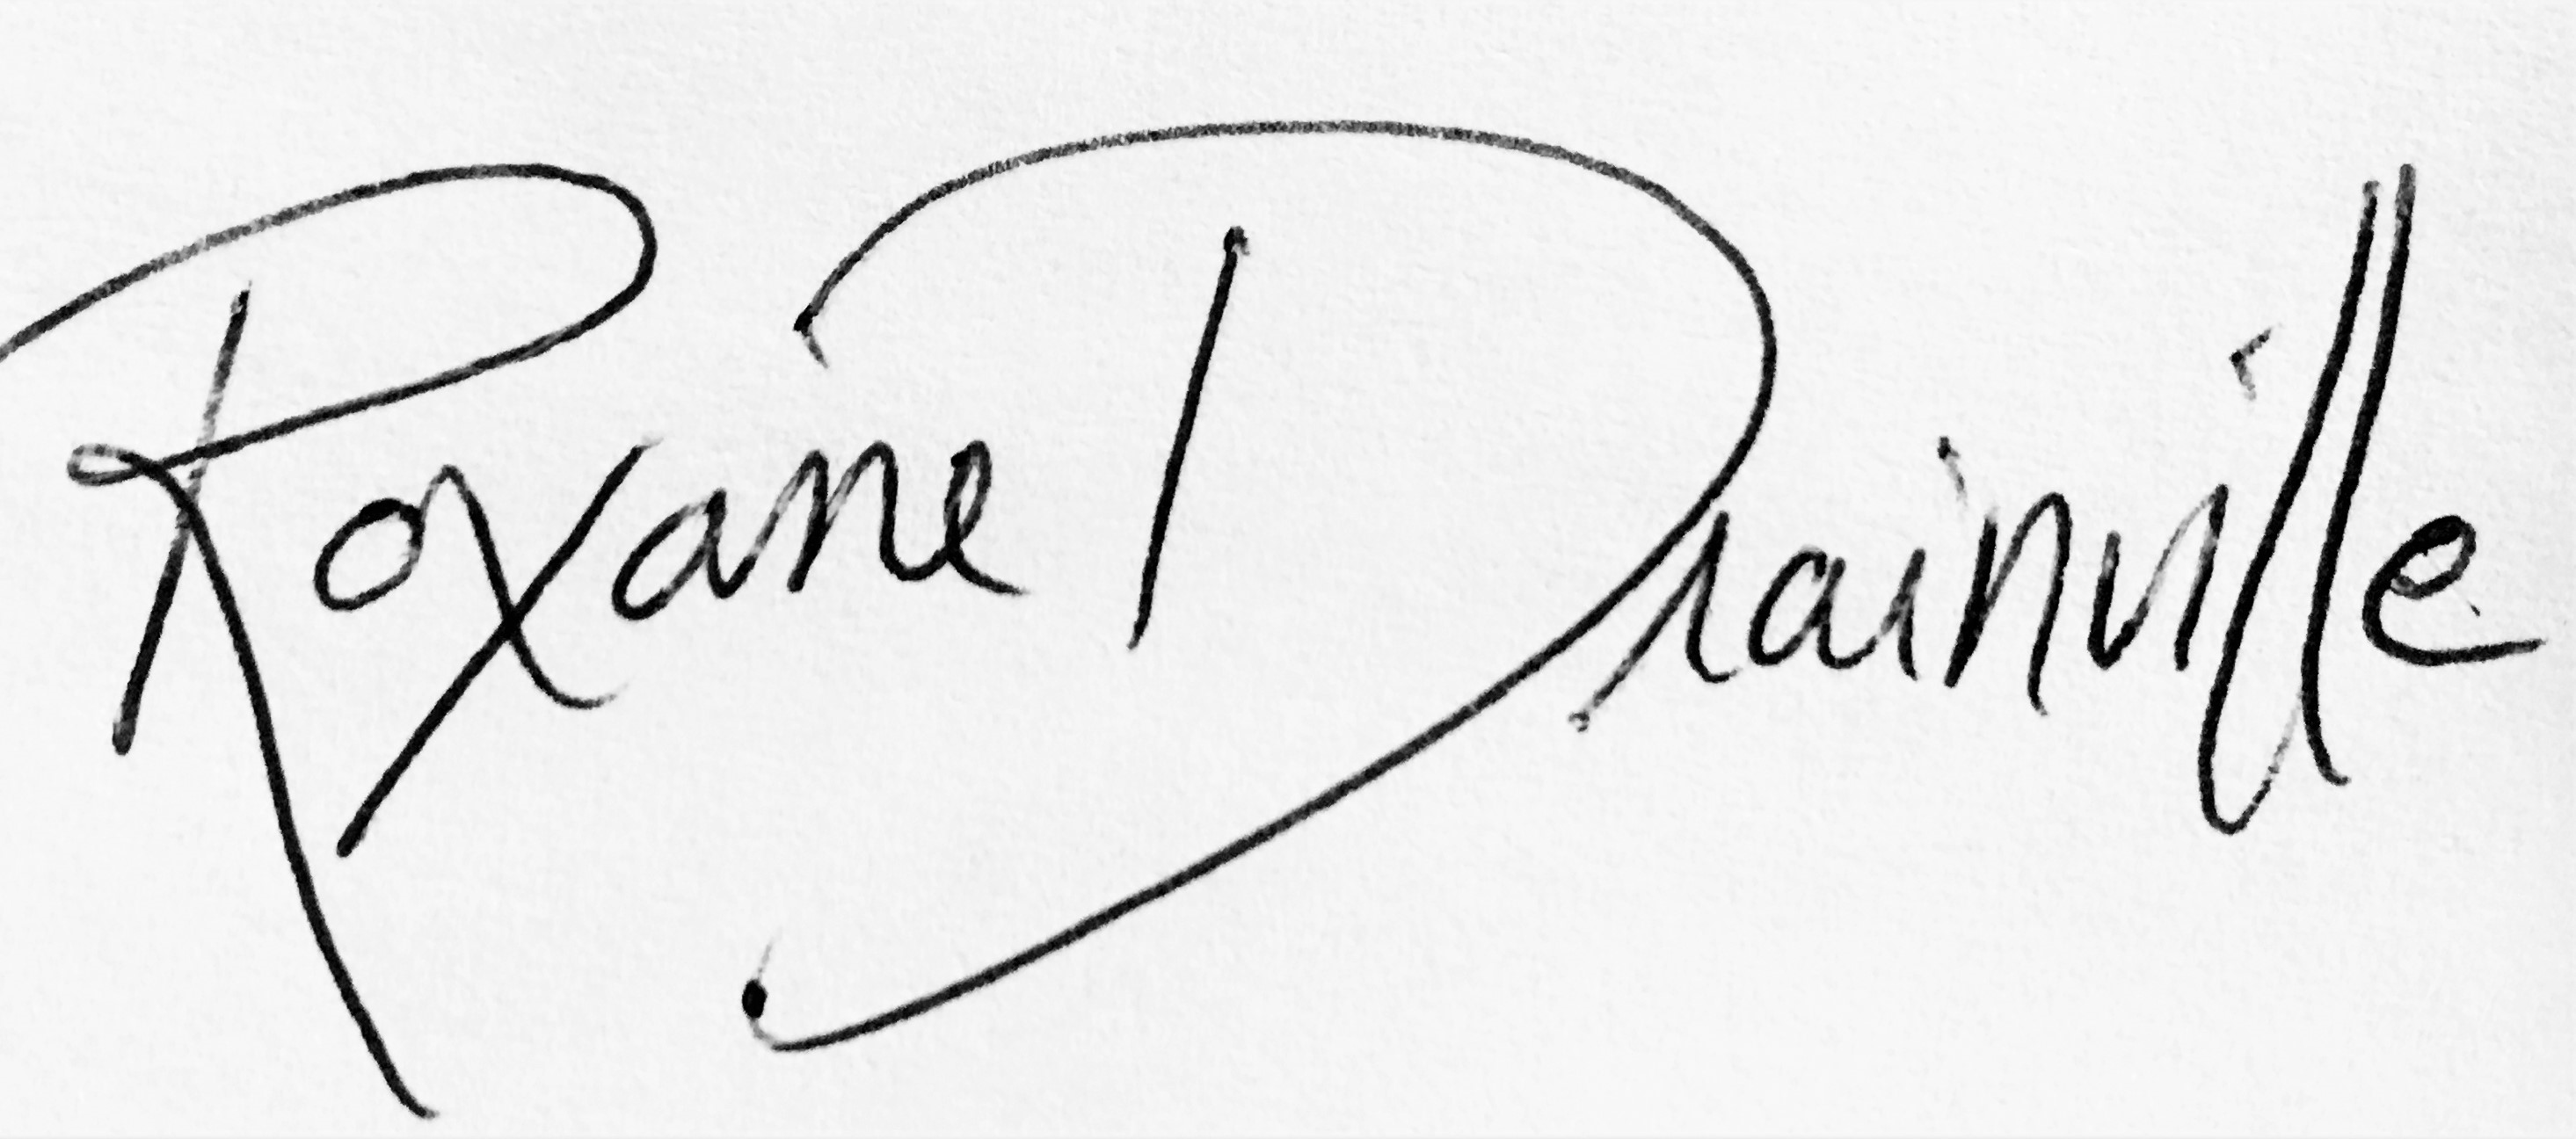 Roxane Drainville